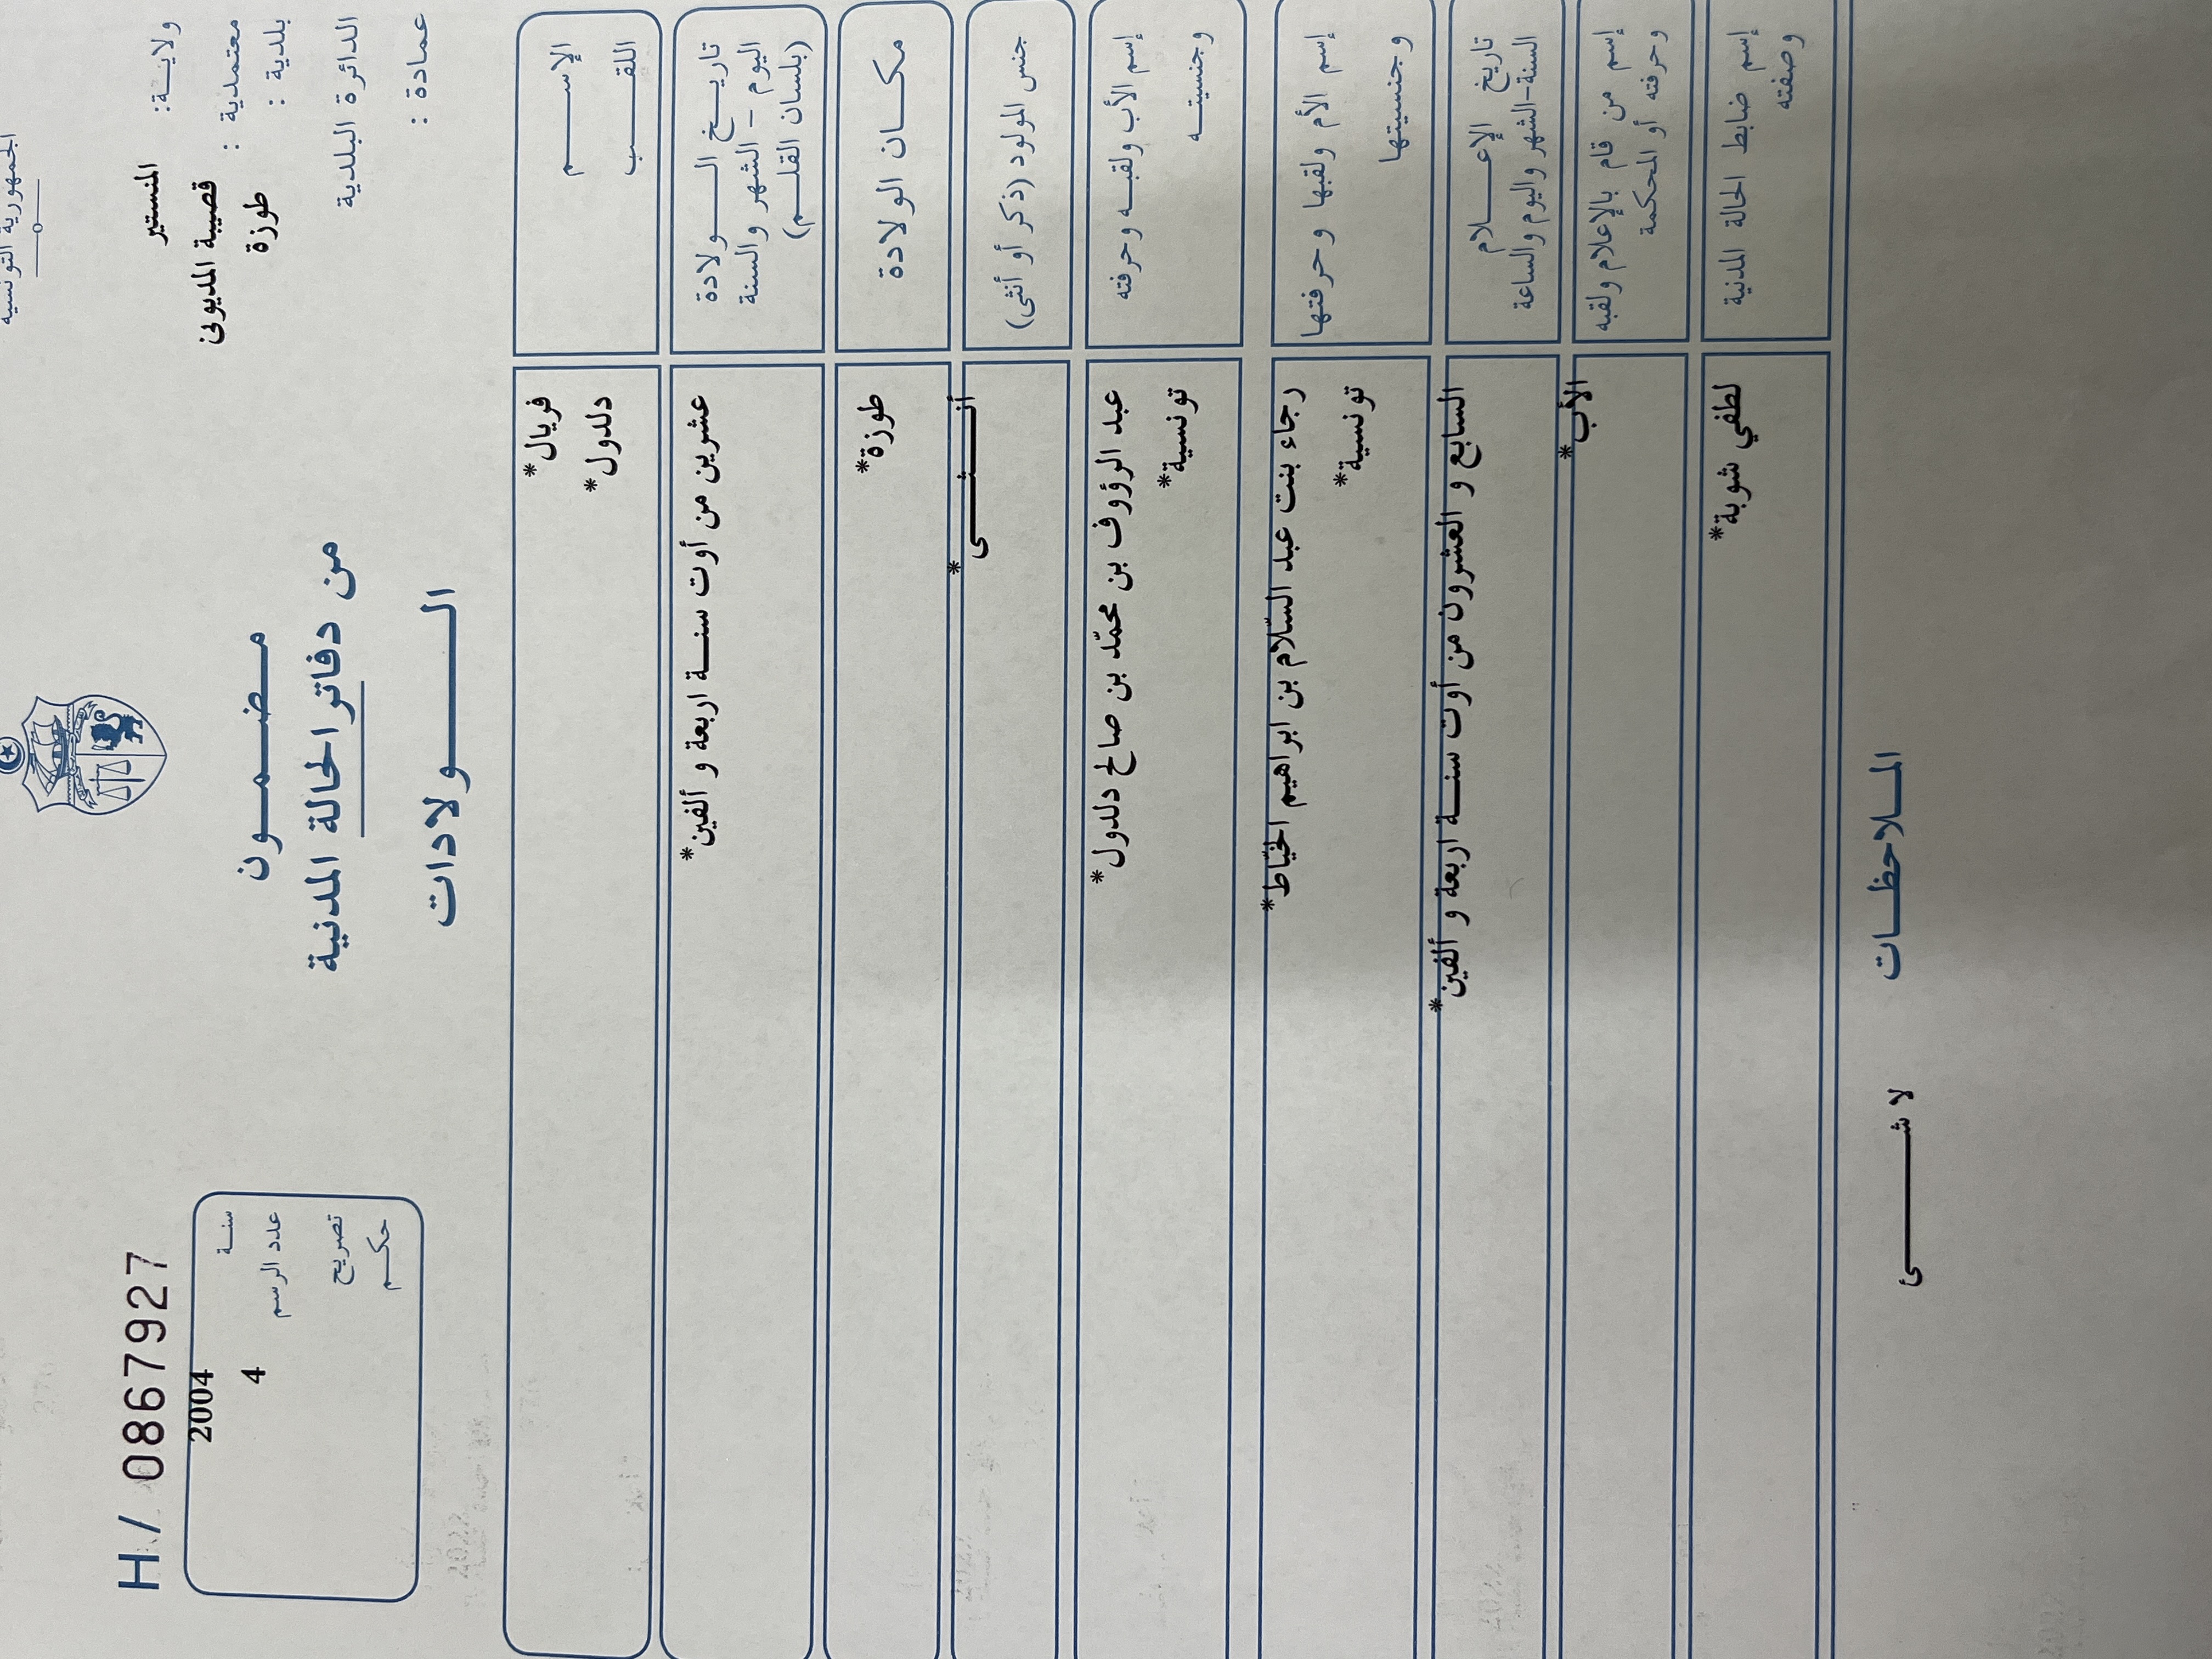 الجمهورية التونسية
ولايـــة: المنستير
معتمدية : قصيبة المديوني
بلدية : طوزة
الدائرة البلدية
عمادة :
مـضـمـــون
من دفاتر الحالة المدنية
الـــــولادات
H/ 0867927
سنـة 2004
عدد الرسم 4
تصريح
حكـم
الإســـــم فريال*
اللقـــــب دلدول*
تاريـــخ الـــــولادة عشرين من أوت سنــة اربعة و ألفين*
اليوم – الشهر والسنة
(بلسان القلـــم)
مكـــان الولادة طوزة*
جنس المولود (ذكر أو أنثى) أنـــــثـــــى*
إسم الأب ولقبـه وحرفته عبد الرؤوف بن محمّد بن صالح دلدول*
وجنسيتـــه تونسية*
إسم الأم ولقبها وحرفتها رجاء بنت عبد السّلام بن ابراهيم الخيّاط*
وجنسيتها تونسية*
تاريخ الإعــــلام السابع و العشرون من أوت سنــة اربعة و ألفين*
السنة-الشهر واليوم والساعة
إسم من قام بالإعلام ولقبه الأب*
وحرفته أو المحكمة
إسم ضابط الحالة المدنية لطفي شوبة*
وصفته
المـلاحظـــات
لا شـــــــئ